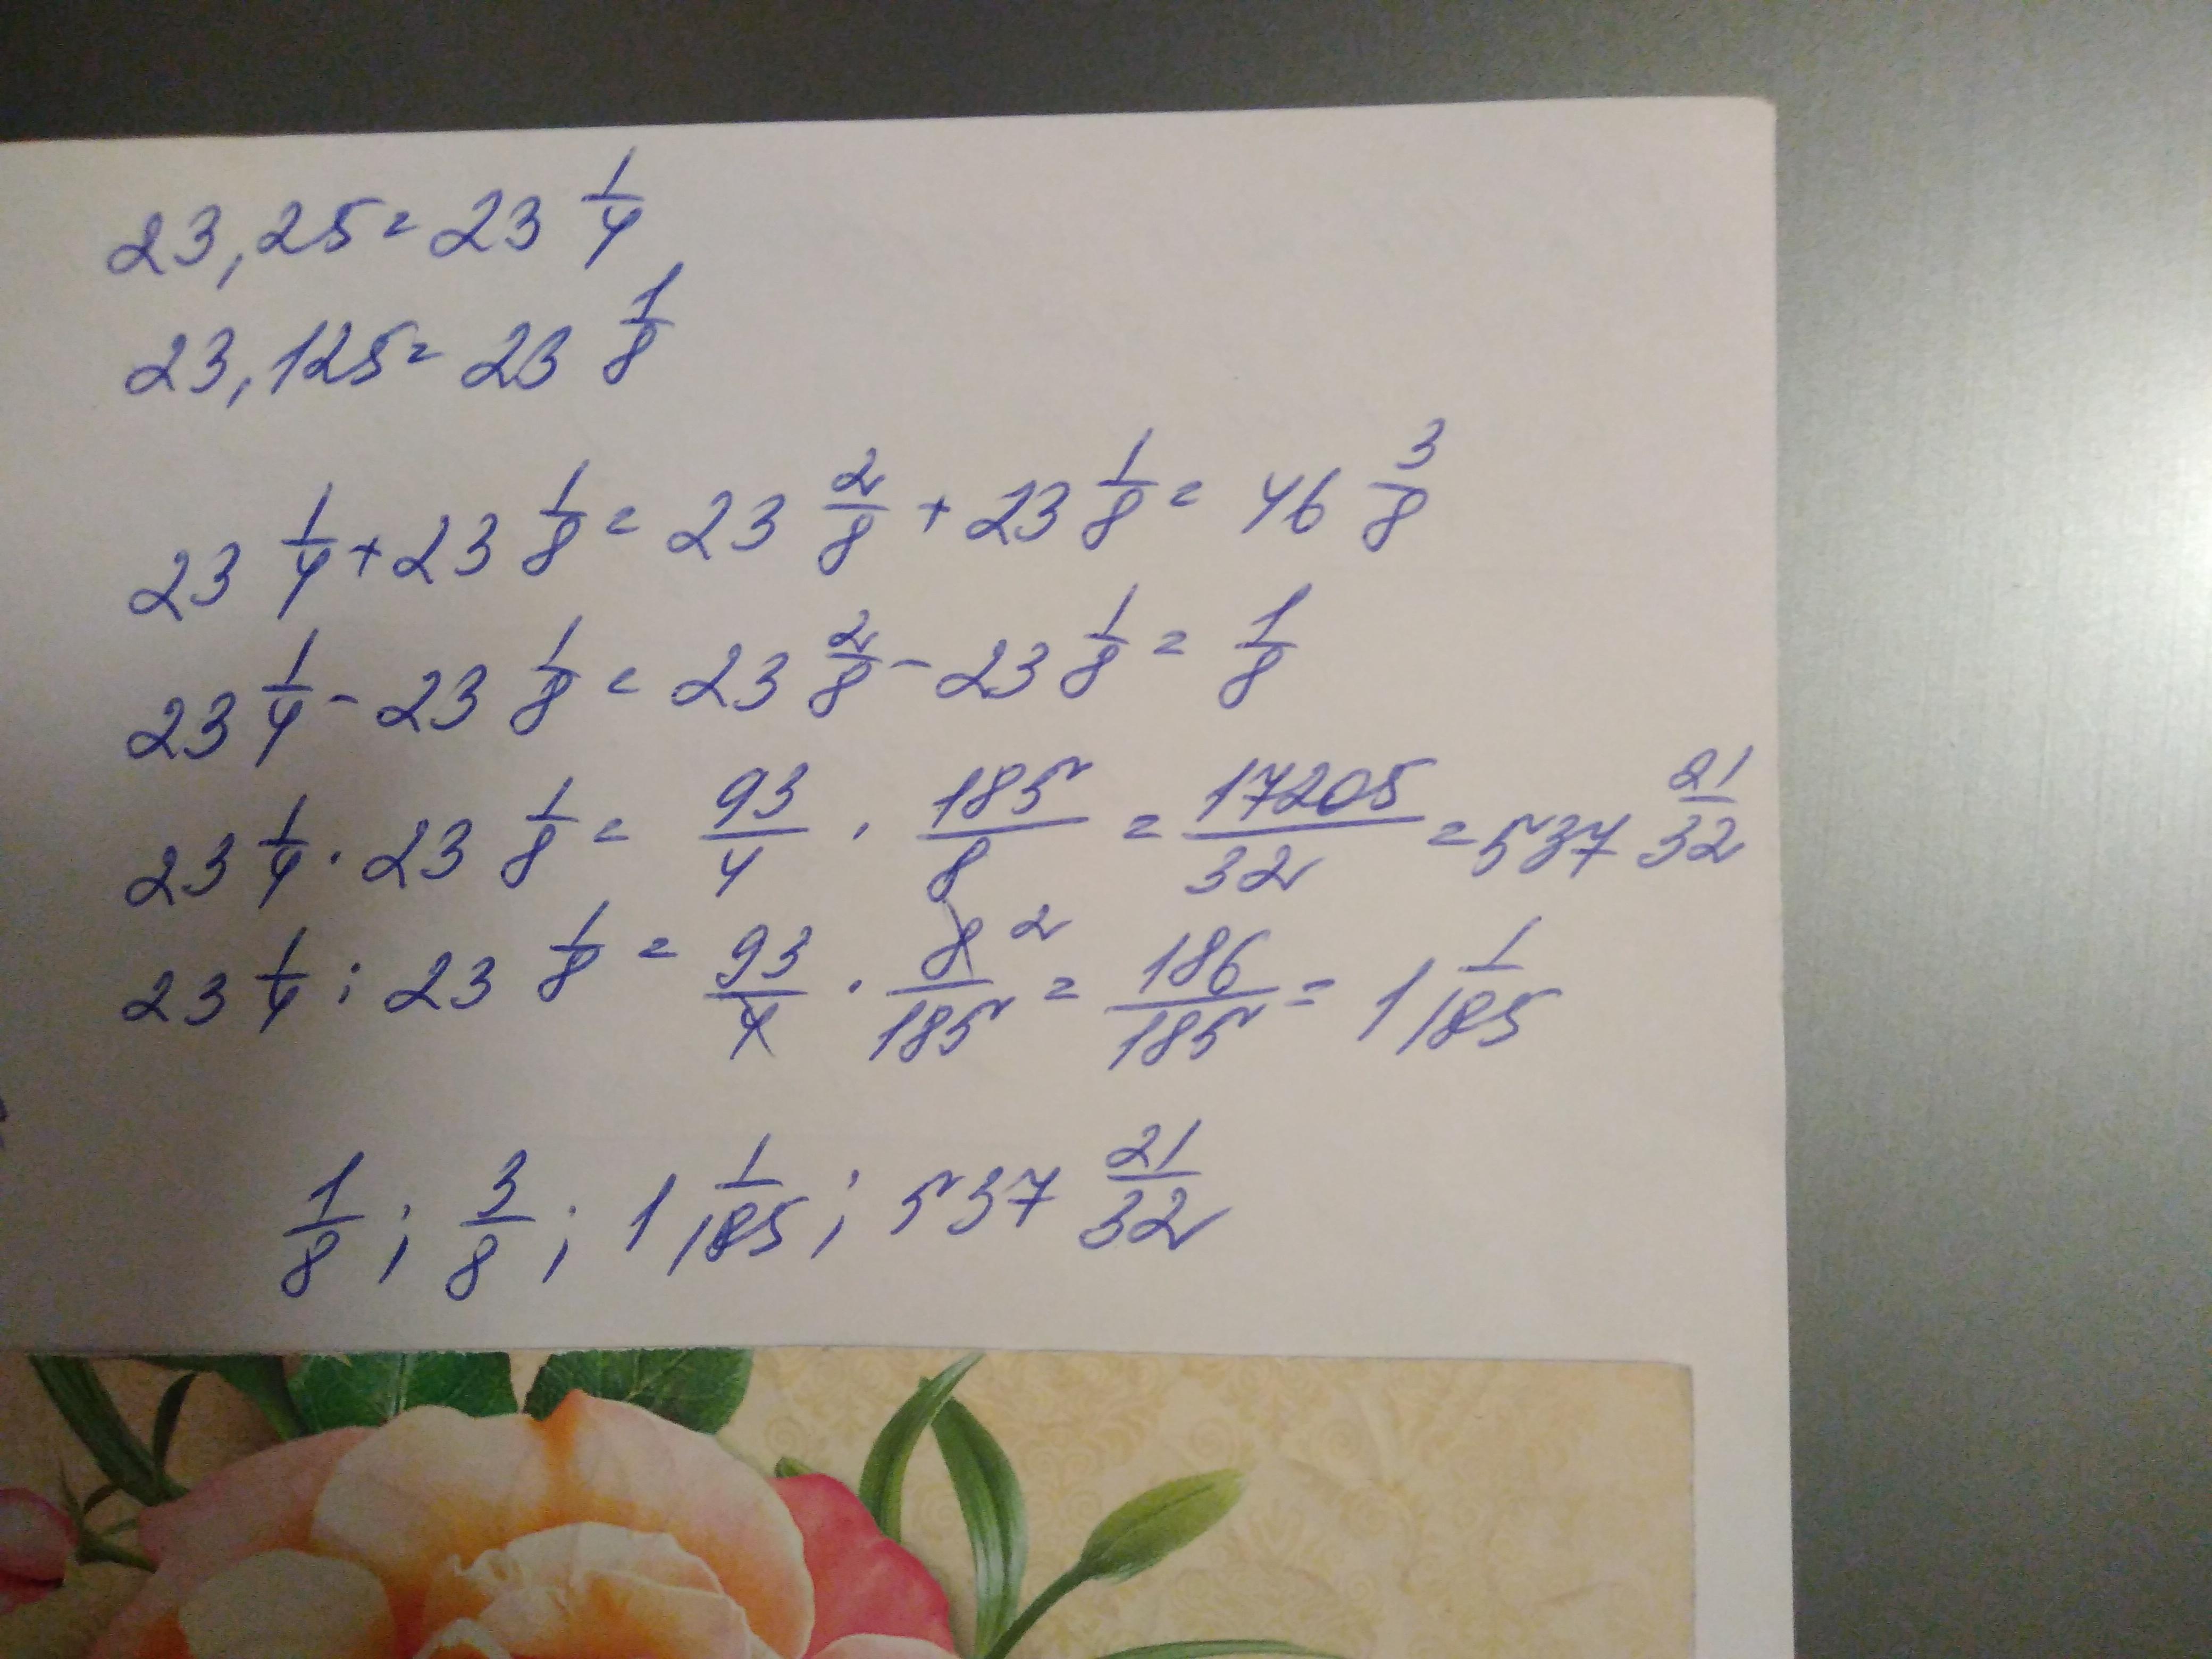 23,25 = 23 1/4
23,125 = 23 1/8
23 1/4 + 23 1/8 = 23 2/8 + 23 1/8 = 46 3/8
23 1/4 - 23 1/8 = 23 2/8 - 23 1/8 = 1/8
23 1/4 · 23 1/8 = 93/4 · 185/8 = 17205/32 = 537 21/32
23 1/4 : 23 1/8 = 93/4 · 8 2/185 = 186/185 = 1 1/185
1/8 ; 3/8 ; 1 1/185 ; 537 21/32